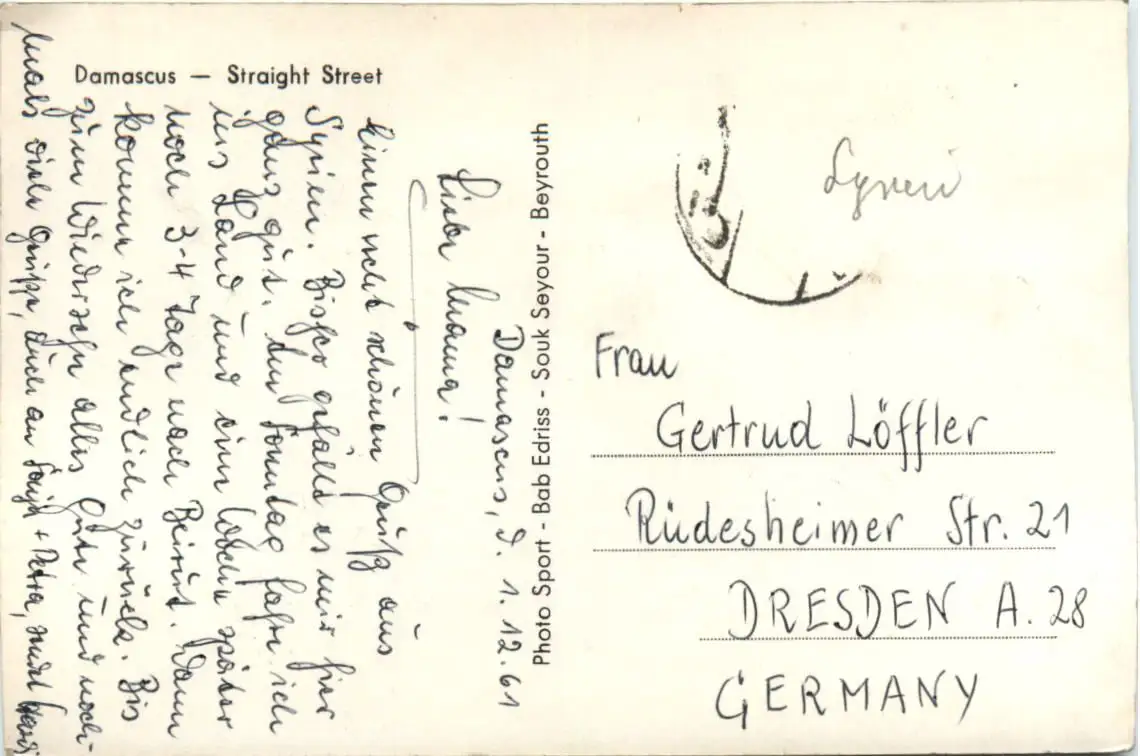 Damascus — Straight Street
Damascus, d. 1.12.61
Liebe Mama!
Einen recht schönen Gruß aus
Syrien. Bisher gefällt es mir hier
ganz gut. Am Sonntag fahre ich
ins Land und eine Woche später
noch 3-4 Tage nach Beirut. Dann
komme ich endlich zurück. Bis
zum Wiedersehn alles Gute und noch-
mals viele Grüße, auch an + Petra,
Photo Sport - Bab Edriss - Souk Seyour - Beyrouth
Syrien
Frau
Gertrud Löffler
Rüdesheimer Str. 21
DRESDEN A. 28
GERMANY